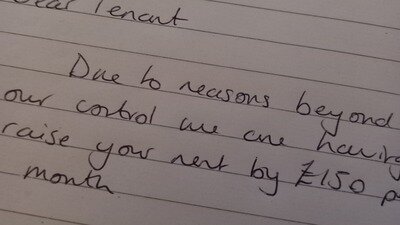 Dear Tenant
Due to reasons beyond
our control we are having
raise your rent by £150 p
month